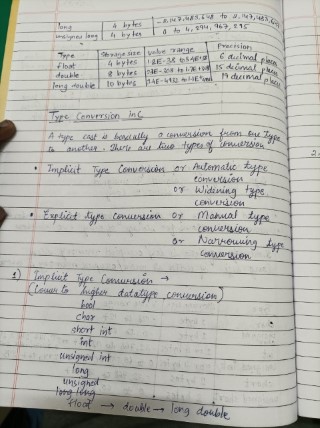 long 4 bytes -2,147,483,648 to 2,147,483,647
unsigned long 4 bytes 0 to 4,294,967,295
Type Storage size Value range Precision
float 4 bytes 1.2E-38 to 3.4E+38 6 decimal places
double 8 bytes 2.3E-308 to 1.7E+308 15 decimal places
long double 10 bytes 3.4E-4932 to 1.1E+4932 19 decimal places
Type Conversion in C
A type cast is basically a conversion from one type
to another. There are two types of conversion
• Implicit Type Conversion or Automatic type
conversion
or Widening type
conversion
• Explicit type conversion or Manual type
conversion
or Narrowing type
conversion
1) Implicit Type Conversion →
(Lower to higher datatype conversion)
bool
char
short int
int
unsigned int
long
unsigned
long long
float → double → long double